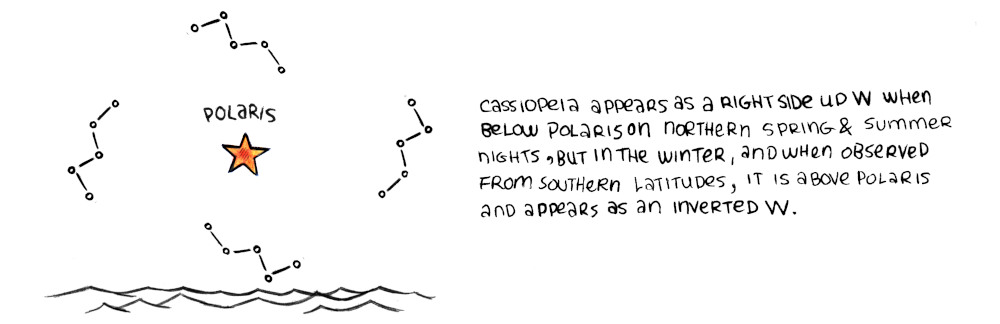 POLARIS
CASSIOPEIA APPEARS AS A RIGHT SIDE UP W WHEN
BELOW POLARIS ON NORTHERN SPRING & SUMMER
NIGHTS, BUT IN THE WINTER, AND WHEN OBSERVED
FROM SOUTHERN LATITUDES, IT IS ABOVE POLARIS
AND APPEARS AS AN INVERTED W.